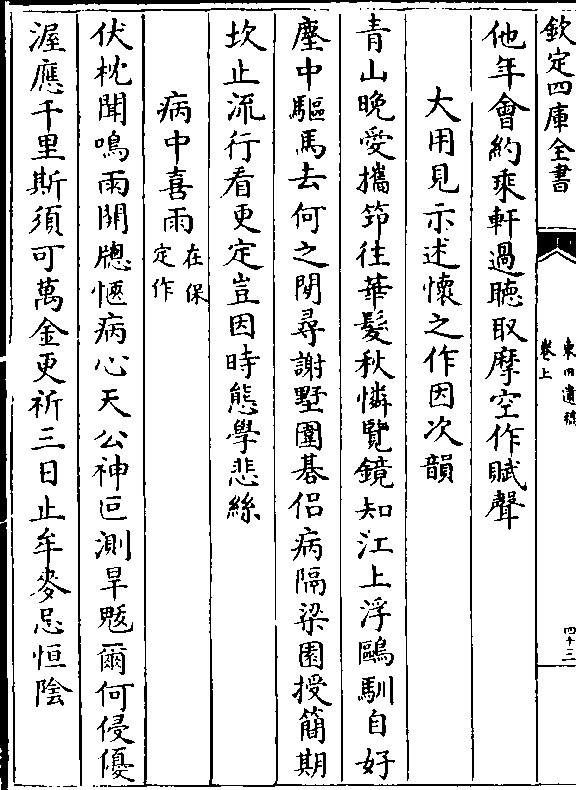 欽定四庫全書
東田遺稿
卷上
四十三
他年會約乘軒過聽取摩空作賦聲
大用見示述懷之作因次韻
青山晚愛攜笻往華髮秋憐覽鏡知江上浮鷗馴自好
塵中驅馬去何之閒尋謝墅圍碁侶病隔梁園授簡期
坎止流行看更定豈因時態學悲絲
病中喜雨在保定作
伏枕聞鳴雨開牕愜病心天公神叵測旱魃爾何侵優
渥應千里斯須可萬金更祈三日止牟麥忌恒陰